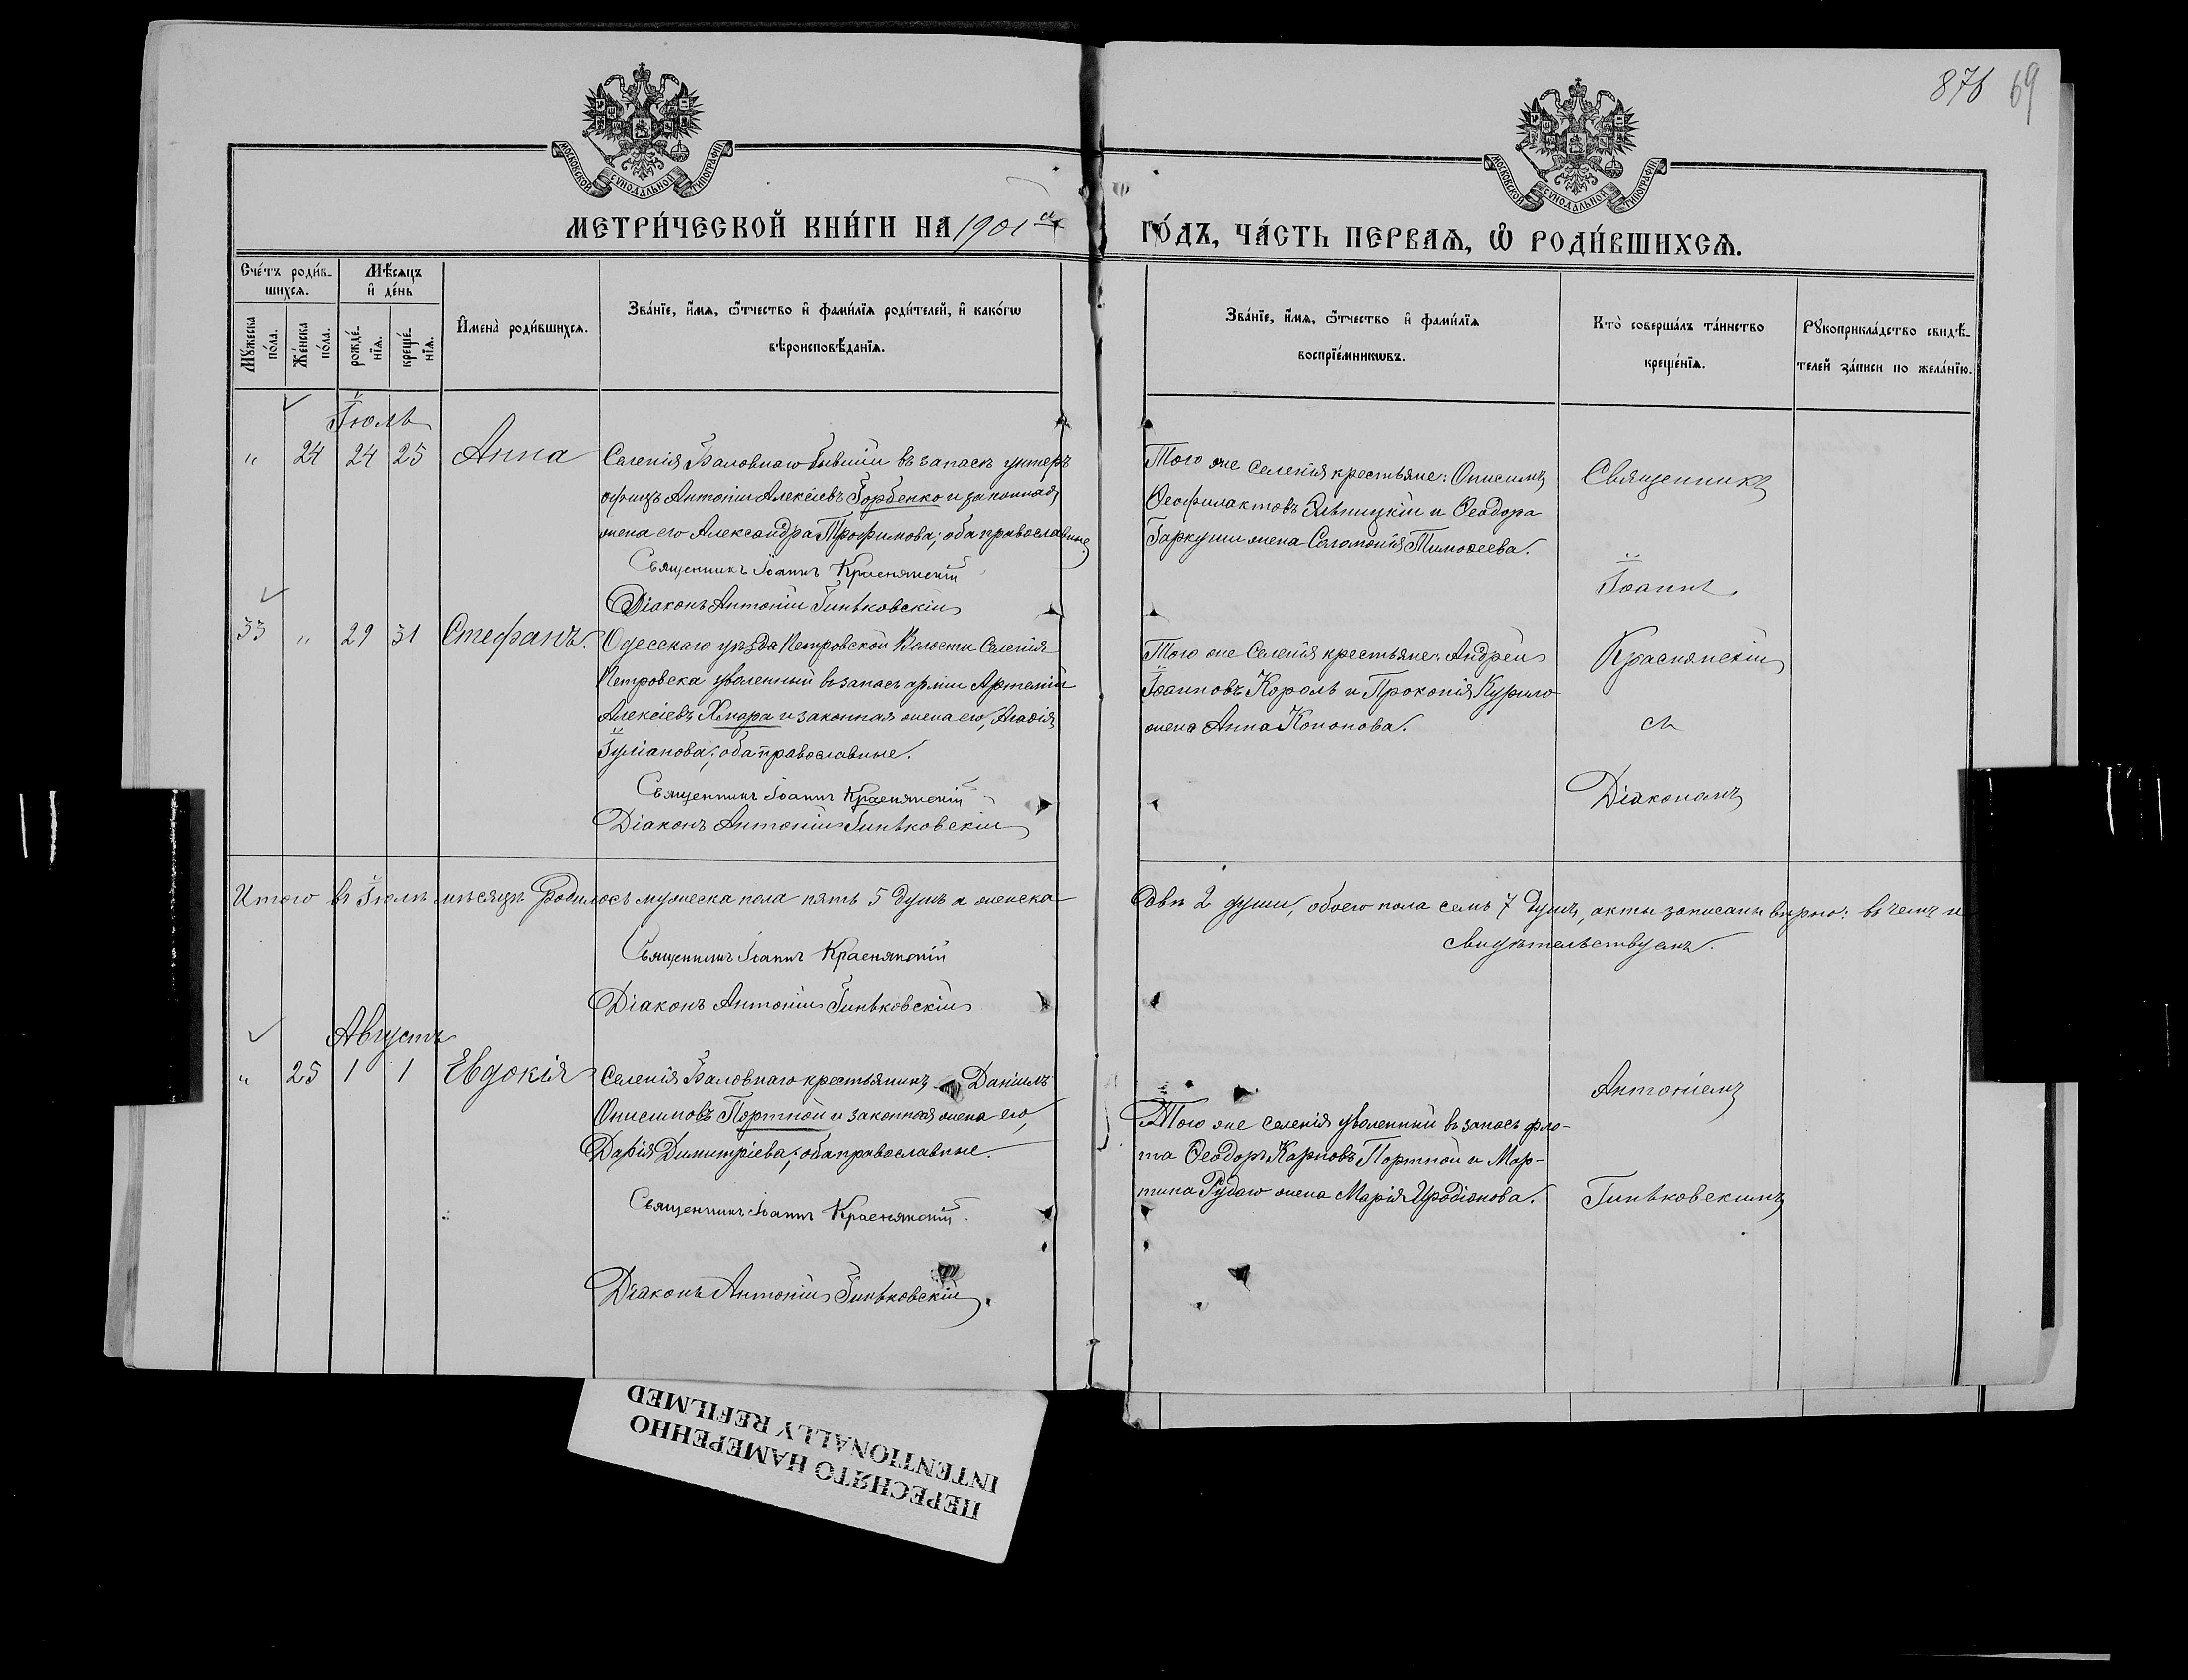 876 69
МОСКОВСКОЙ СѴНОДАЛЬНОЙ ТИПОГРАФІИ
МОСКОВСКОЙ СѴНОДАЛЬНОЙ ТИПОГРАФІИ
МЕТРИ́ЧЕСКОЙ КНИ́ГИ НА 1901 й ГО́ДЪ, ЧА́СТЬ ПЕРВАѦ, Ѽ РОДИ́ВШИХСѦ.
Сче́тъ роди́в-
шихсѧ.
Мѣ́сѧцъ
и҆ де́нь
Мꙋ́жеска по́ла.
Же́нска по́ла.
рожде́-
нїѧ.
креще́-
нїѧ.
И҆мена̀ роди́вшихсѧ.
Зва́нїе, и҆́мѧ, ѻ҆́тчество и҆ фами́лїѧ роди́телей, и҆ како́гѡ
вѣроисповѣ́данїѧ.
Зва́нїе, и҆́мѧ, ѻ҆́тчество и҆ фами́лїѧ
воспрїе́мникѡвъ.
Кто̀ соверша́лъ та́инство
креще́нїѧ.
Рꙋкоприкла́дство свидѣ́-
телей за́писи по жела́нїю.
Іюль
" 24 24 25 Анна
Селенія Баловнаго бывшій въ запасѣ унтеръ
офицъ Антоній Алексіевъ Горбенко и законная
жена его Александра Трофимова; оба православные
Священникъ Іоаннъ Краснянскій
Діаконъ Антоній Гиньковскій
Того же селенія крестьяне: Онисимъ
Ѳеофилактовъ и Ѳеодора
Гаркуши жена Соломонія Тимоѳеева.
Священникъ
Іоаннъ
33 " 29 31 Стефанъ.
Одесскаго уѣзда Петровской Волости Селенія
Петровска уволенный въ запасъ арміи Артемій
Алексіевъ Хмара и законная жена его, Агафія
Іуліанова; оба православные.
Священникъ Іоаннъ Краснянскій
Діаконъ Антоній Гиньковскій
Того же Селенія крестьяне: Андрей
Іоанновъ Король и Прокопія Курило
жена Анна Кононова.
Краснянскій
съ
Діакономъ
Итого въ Іюлѣ мѣсяцѣ родилось мужеска пола пять 5 душъ а женска
двѣ 2 души, обоего пола семь 7 душъ, акты записаны вѣрно: въ чемъ и
свидѣтельствуемъ.
Священникъ Іоаннъ Краснянскій
Діаконъ Антоній Гиньковскій
Августъ
" 25 1 1 Евдокія
Селенія Баловнаго крестьянинъ Даніилъ
Онисимовъ Портной и законная жена его,
Дарія Димитріева; оба православные.
Священникъ Іоаннъ Краснянскій.
Діаконъ Антоній Гиньковскій.
Того же селенія уволенный въ запасъ фло-
та Ѳеодоръ Карповъ Портной и Мар-
тина Рудаго жена Марія Иродіонова.
Антоніемъ
Гиньковскимъ
ПЕРЕСНЯТО НАМЕРЕННО
INTENTIONALLY REFILMED